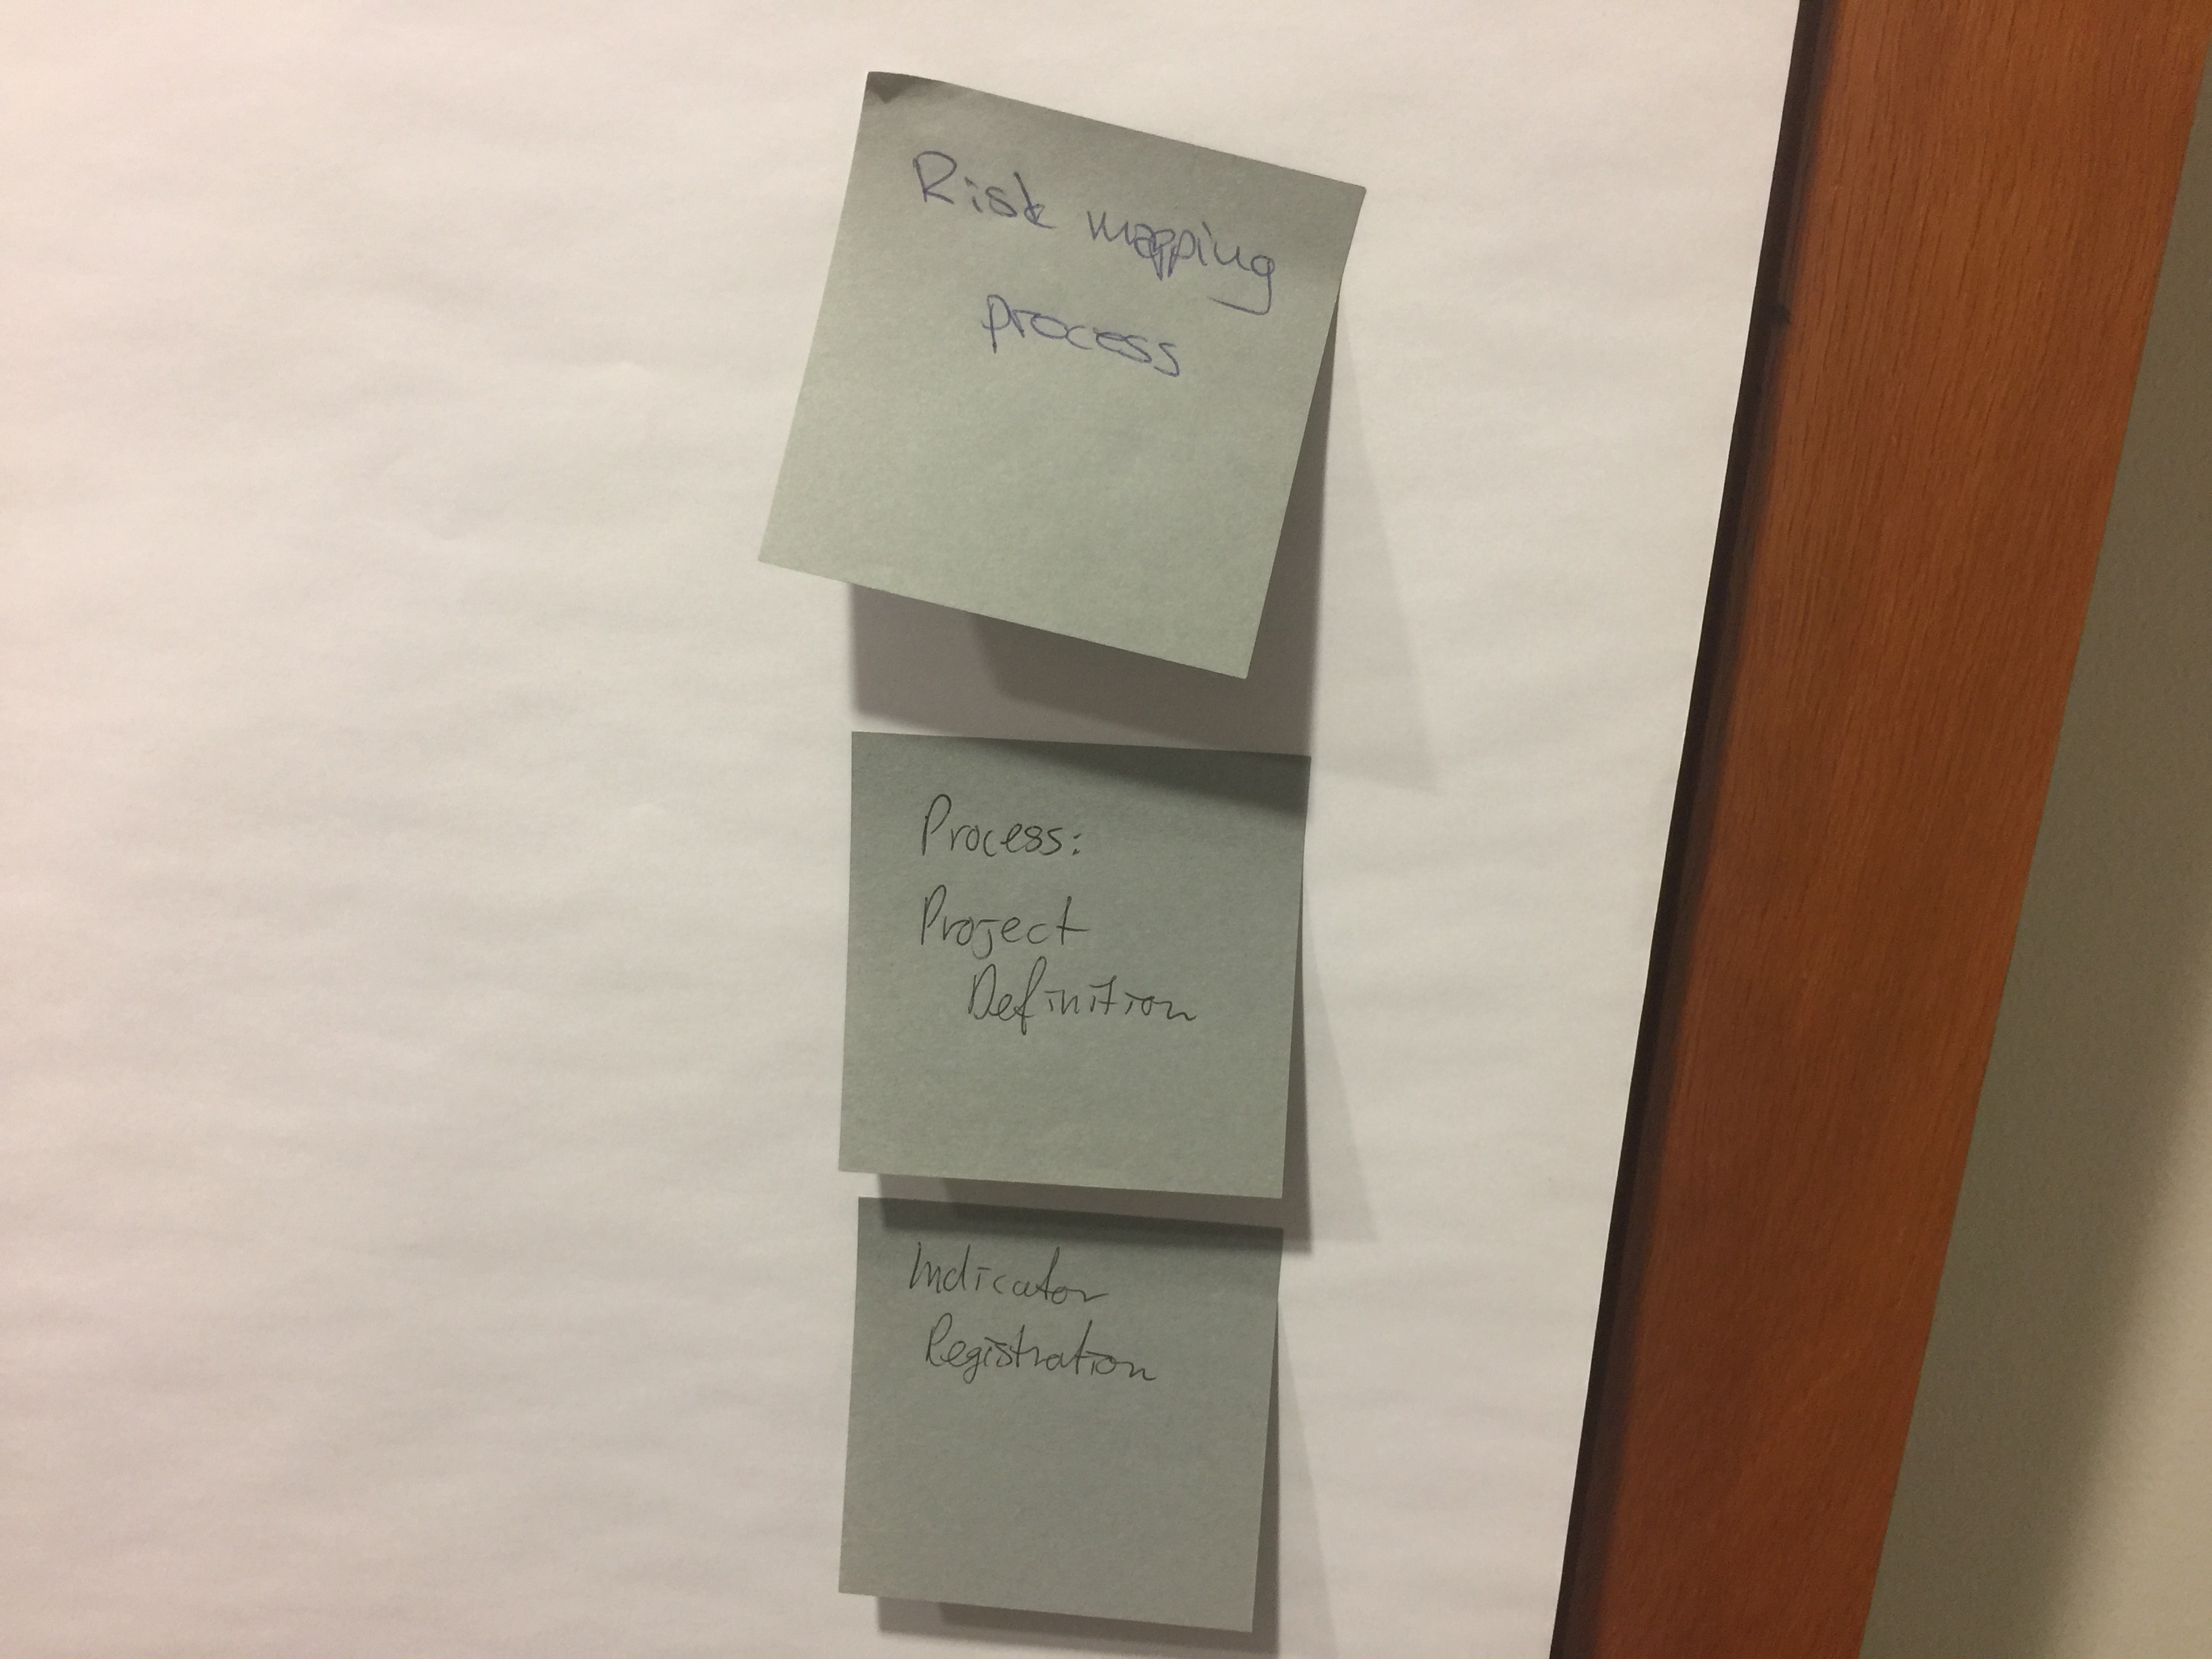 Risk mapping
process
Process:
Project
Definition
Indicator
Registration